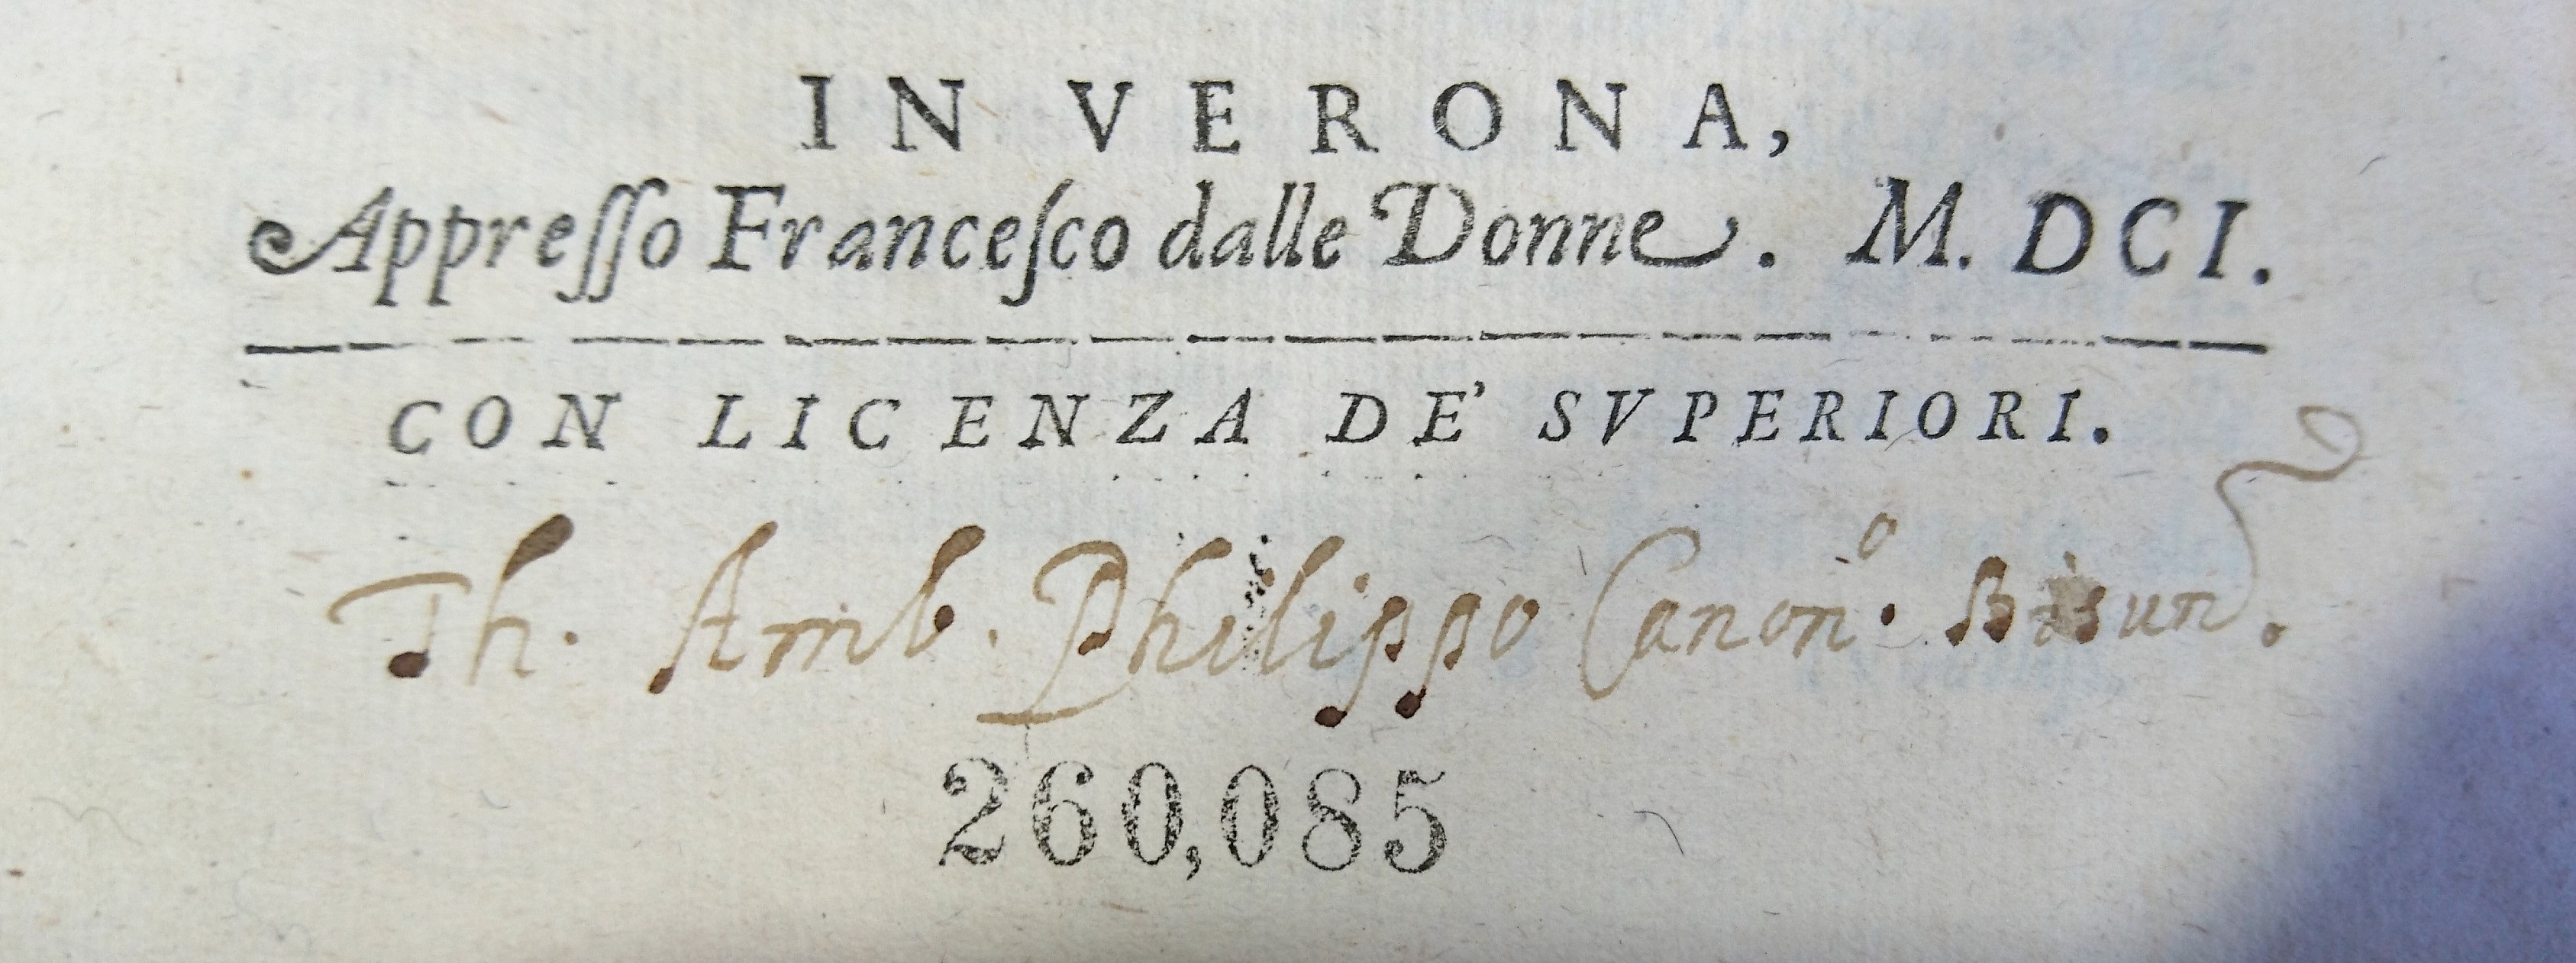 IN VERONA,
Appreſſo Franceſco dalle Donne. M. DCI.
CON LICENZA DE' SVPERIORI.
Th. Amb. Philippo Canonº. Bisun̄.
260,085